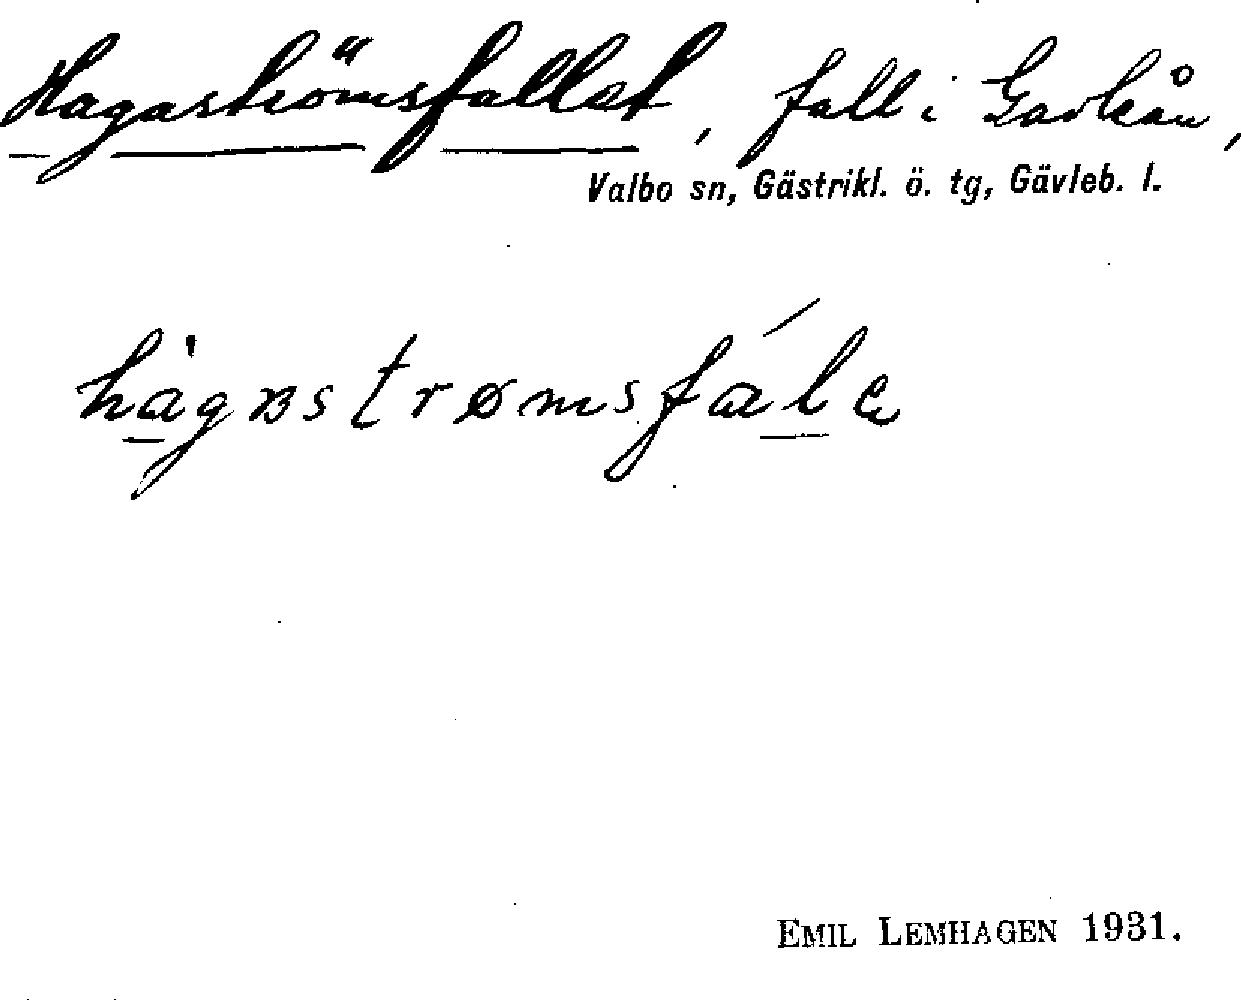 Hagaströmsfallet, fall i Gavleån,
Valbo sn, Gästrikl. ö. tg, Gävleb. l.
EMIL LEMHAGEN 1931.